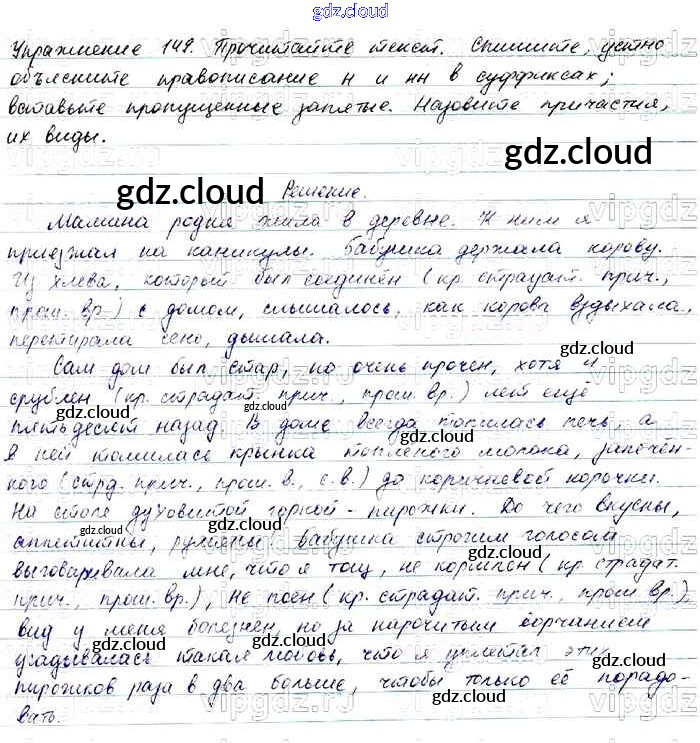 gdz.cloud
Упражнение 149. Прочитайте текст. Спишите, устно
объясните правописание н и нн в суффиксах;
вставьте пропущенные запятые. Назовите причастия,
их виды.
gdz.cloud
gdz.cloud
Решение.
Мамина родня жила в деревне. К ним я
приезжал на каникулы. Бабушка держала корову.
Из хлева, который был соединён (кр. страдат. прич.,
прош. вр.) с домом, слышалось, как корова вздыхала,
перетирала сено, дышала.
Сам дом был стар, но очень прочен, хотя и
срублен (кр. страдат. прич., прош. вр.) лет ещё
пятьдесят назад. В доме всегда топилась печь, а
в ней томилась крынка топлёного молока, запечён-
ного (стрд. прич., прош. в., с.в.) до коричневой корочки.
На столе духовитой горкой - пирожки. До чего вкусны,
аппетитны, румяны! Бабушка строгим голосом
выговаривала мне, что я тощ, не кормлен (кр. страдат.
прич., прош. вр.), не поен (кр. страдат. прич., прош вр.),
вид у меня болезнен, но за нарочитым ворчанием
угадывалась такая любовь, что я уплетал эти
пирожков раза в два больше, чтобы только её порадо-
вать.